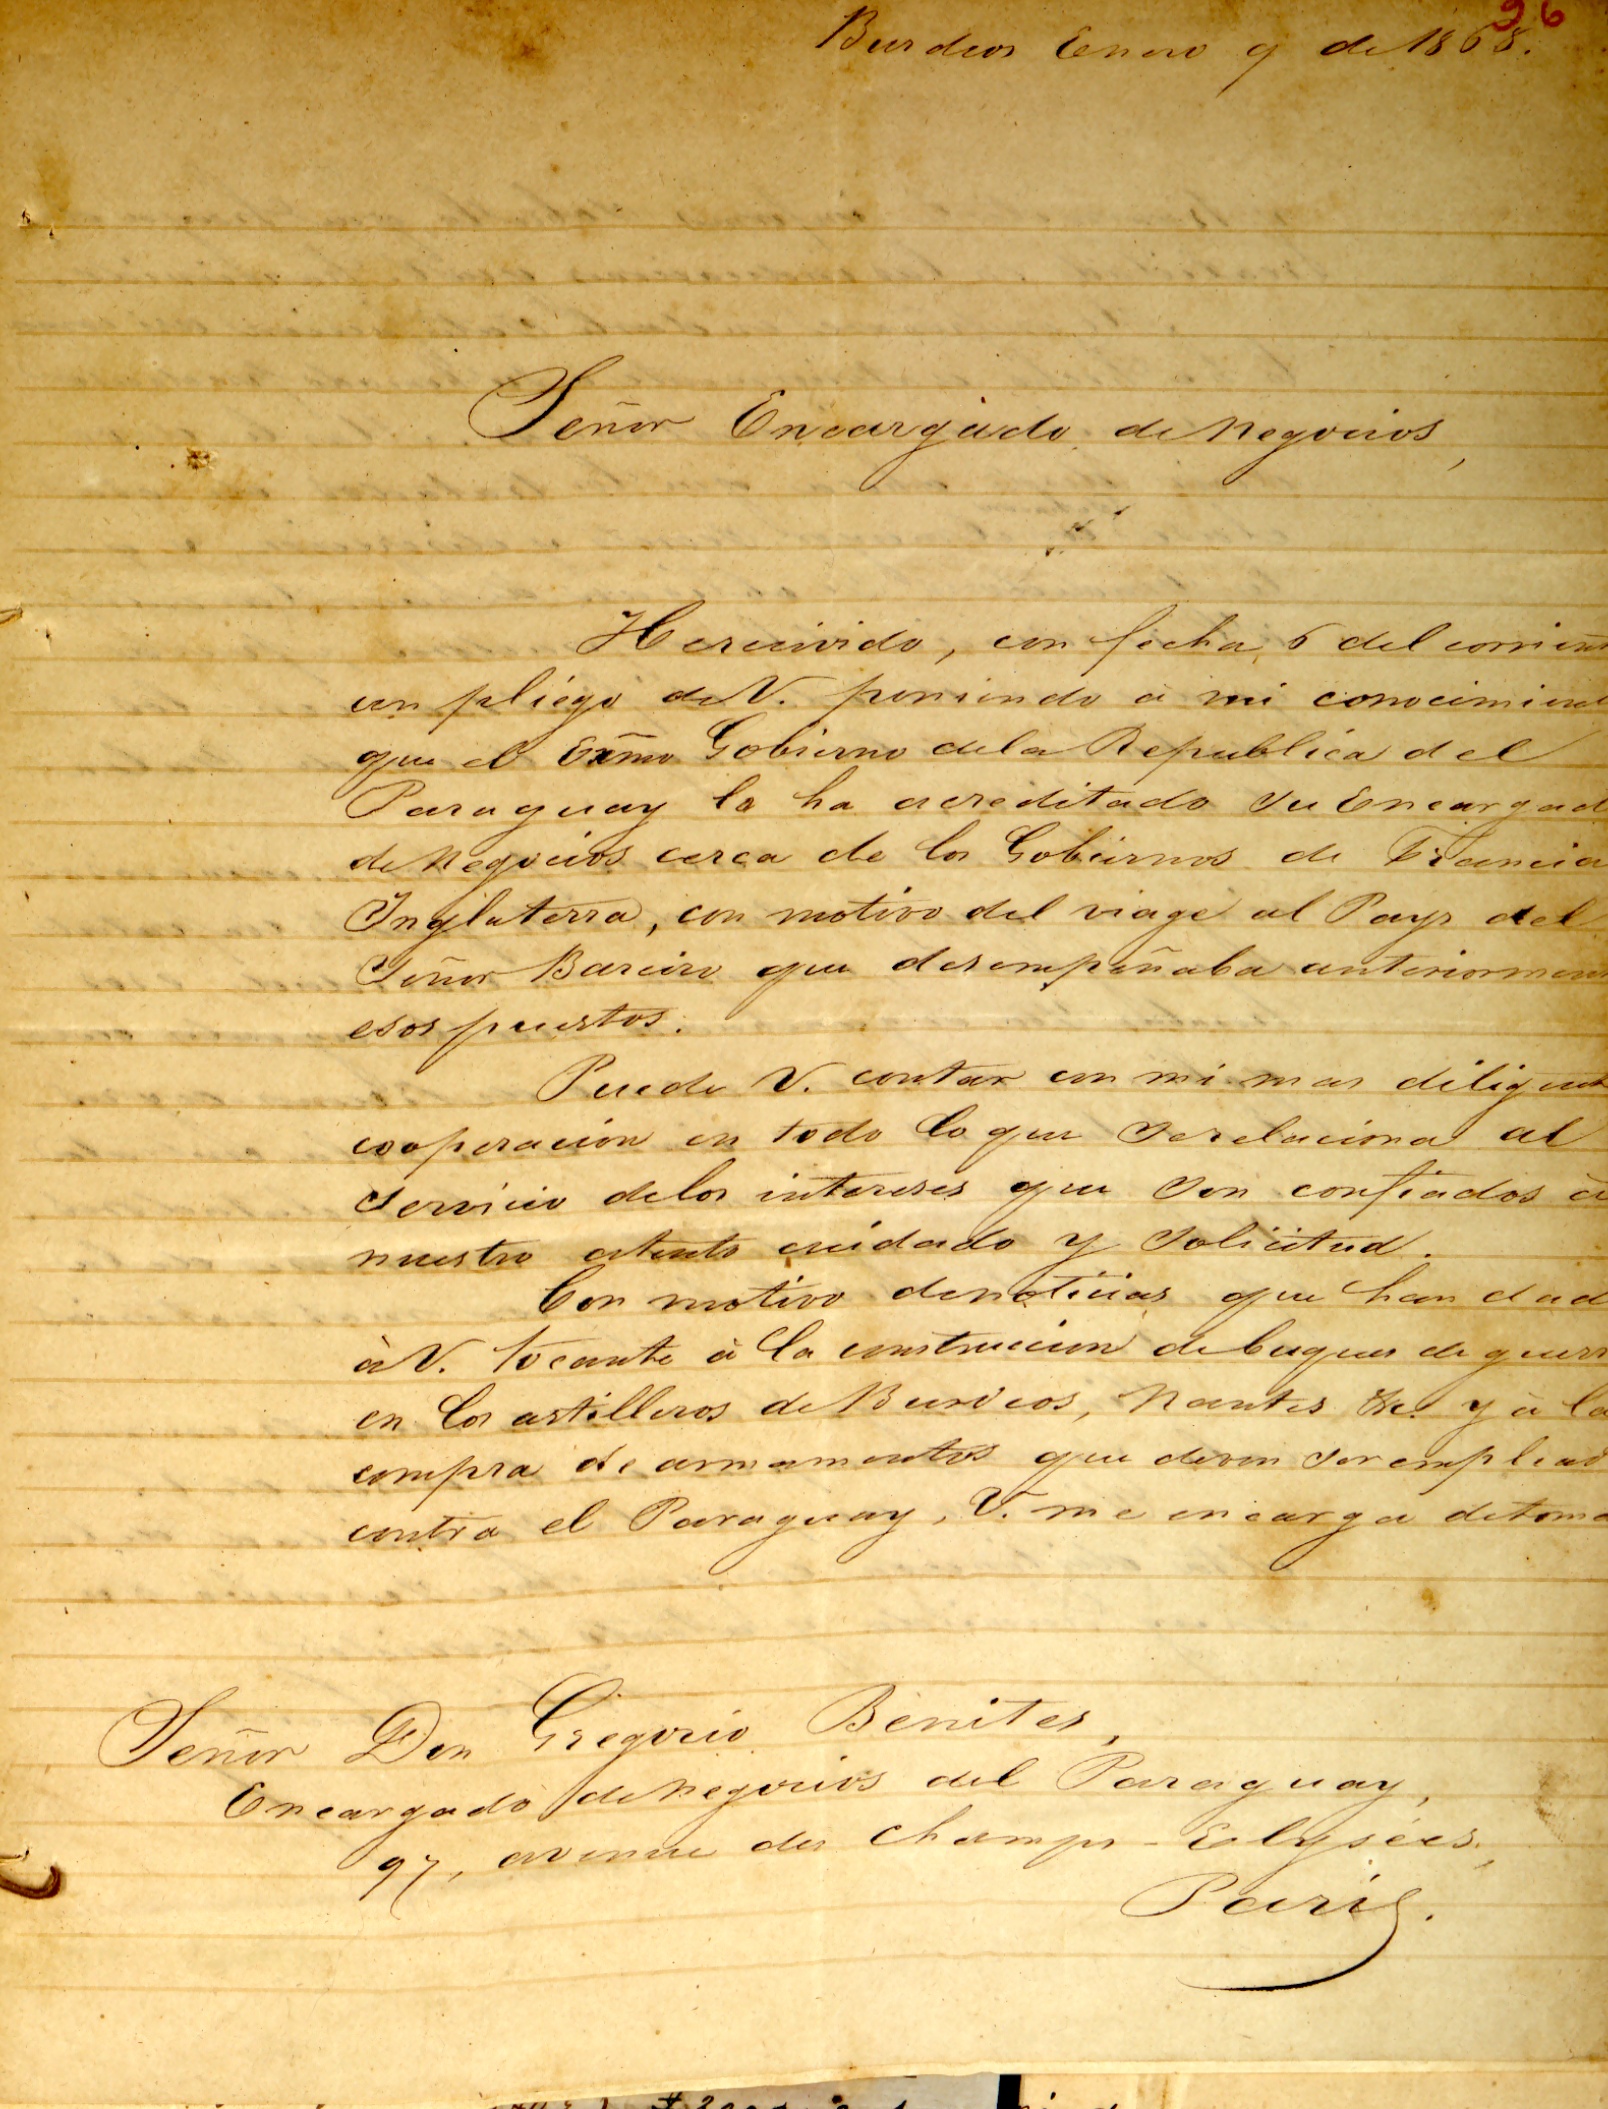 96
Burdeos Enero 9 de 1868.
Señor Encargado de Negocios,
He recivido, con fecha 6 del corrien
un pliego de V. poniendo à mi conocimient
que el Exmo Gobierno dela Republica del
Paraguay lo ha acreditado su Encargad
de Negocios cerca de los Gobiernos de Francia
Inglaterra, con motivo del viage al Pays del
Señor Bareiro que desempeñaba anteriormen
esos puestos.
Puede V. contar con mi mas diligent
cooperacion en todo lo que se relaciona al
servicio delos intereses que son confiados à
nuestro atento cuidado y solicitud.
Con motivo de noticias que han dad
à V. tocante à la construccion de buques de guerr
en los astilleros de Burdeos, Nantes &c. y à la
compra de armamentos que deven ser emplead
contra el Paraguay, V. me encarga de toma
Señor Don Gregorio Benites,
Encargado de Negocios del Paraguay,
97, avenue des Champs-Elysées,
Paris.